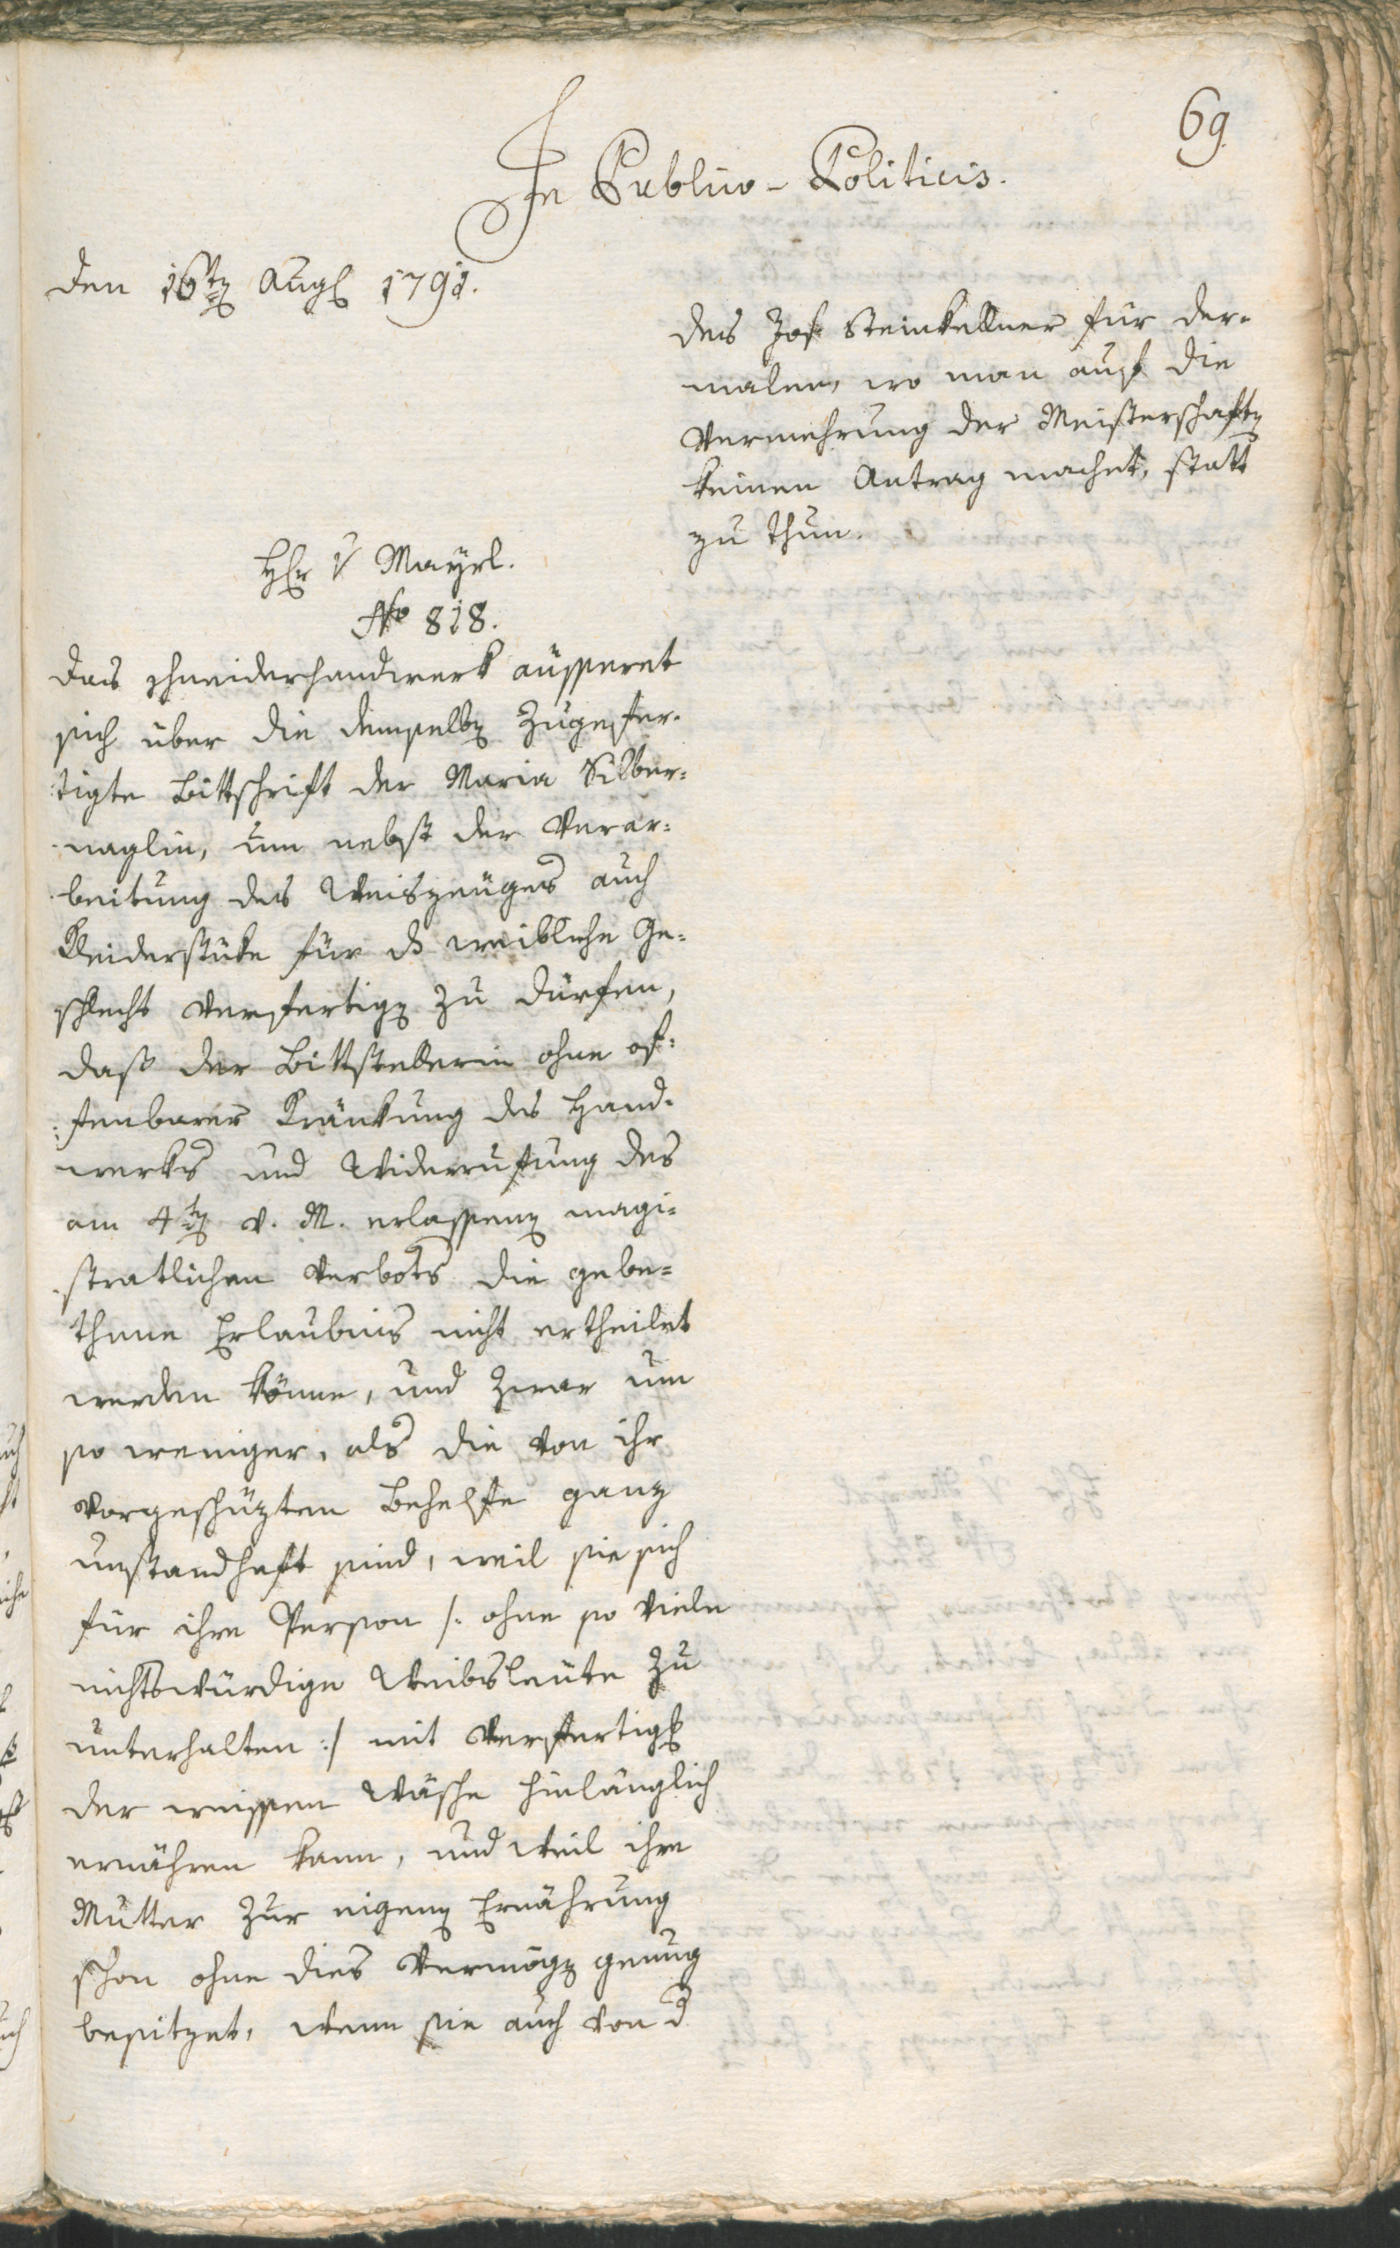 69
In Publico-Politicis.
den 16ten Aug 1791.
des Jos Steinkellner für der-
malen, wo man auf die
Vermehrung der Meisterschaften
keinen Antrag machet, statt
zu thun.
Hr v Mayrl.
No 818.
Das schneiderhandwerk äusseret
sich über die demselben Zugefer-
tigte Bittschrift der Maria Silber-
naglin, um nebst der Verar-
beitung des Weiszeuges auch
Kleiderstüke für ds weibliche Ge-
schlecht verfertigen zu dürfen,
daß der Bittstellerin ohne of-
fenbarer Kränkung des Hand-
werks und Widerrufung des
am 4ten v. M. erlassenen magi-
stratlichen Verbots die gebe-
thene Erlaubnis nicht ertheilet
werden könne, und zwar um
so weniger, als die von ihr
vorgeschüzten Behelfe ganz
unstandhaft sind, weil sie sich
für ihre Person /: ohne so viele
nichtswürdige Weibsleute zu
unterhalten :/ mit Verfertigg
der weissen Wäsche hinlänglich
ernähren kann, und weil ihre
Mutter zur eigenen Ernährung
schon ohne dies Vermögen genug
besitzet, wenn sie auch von d